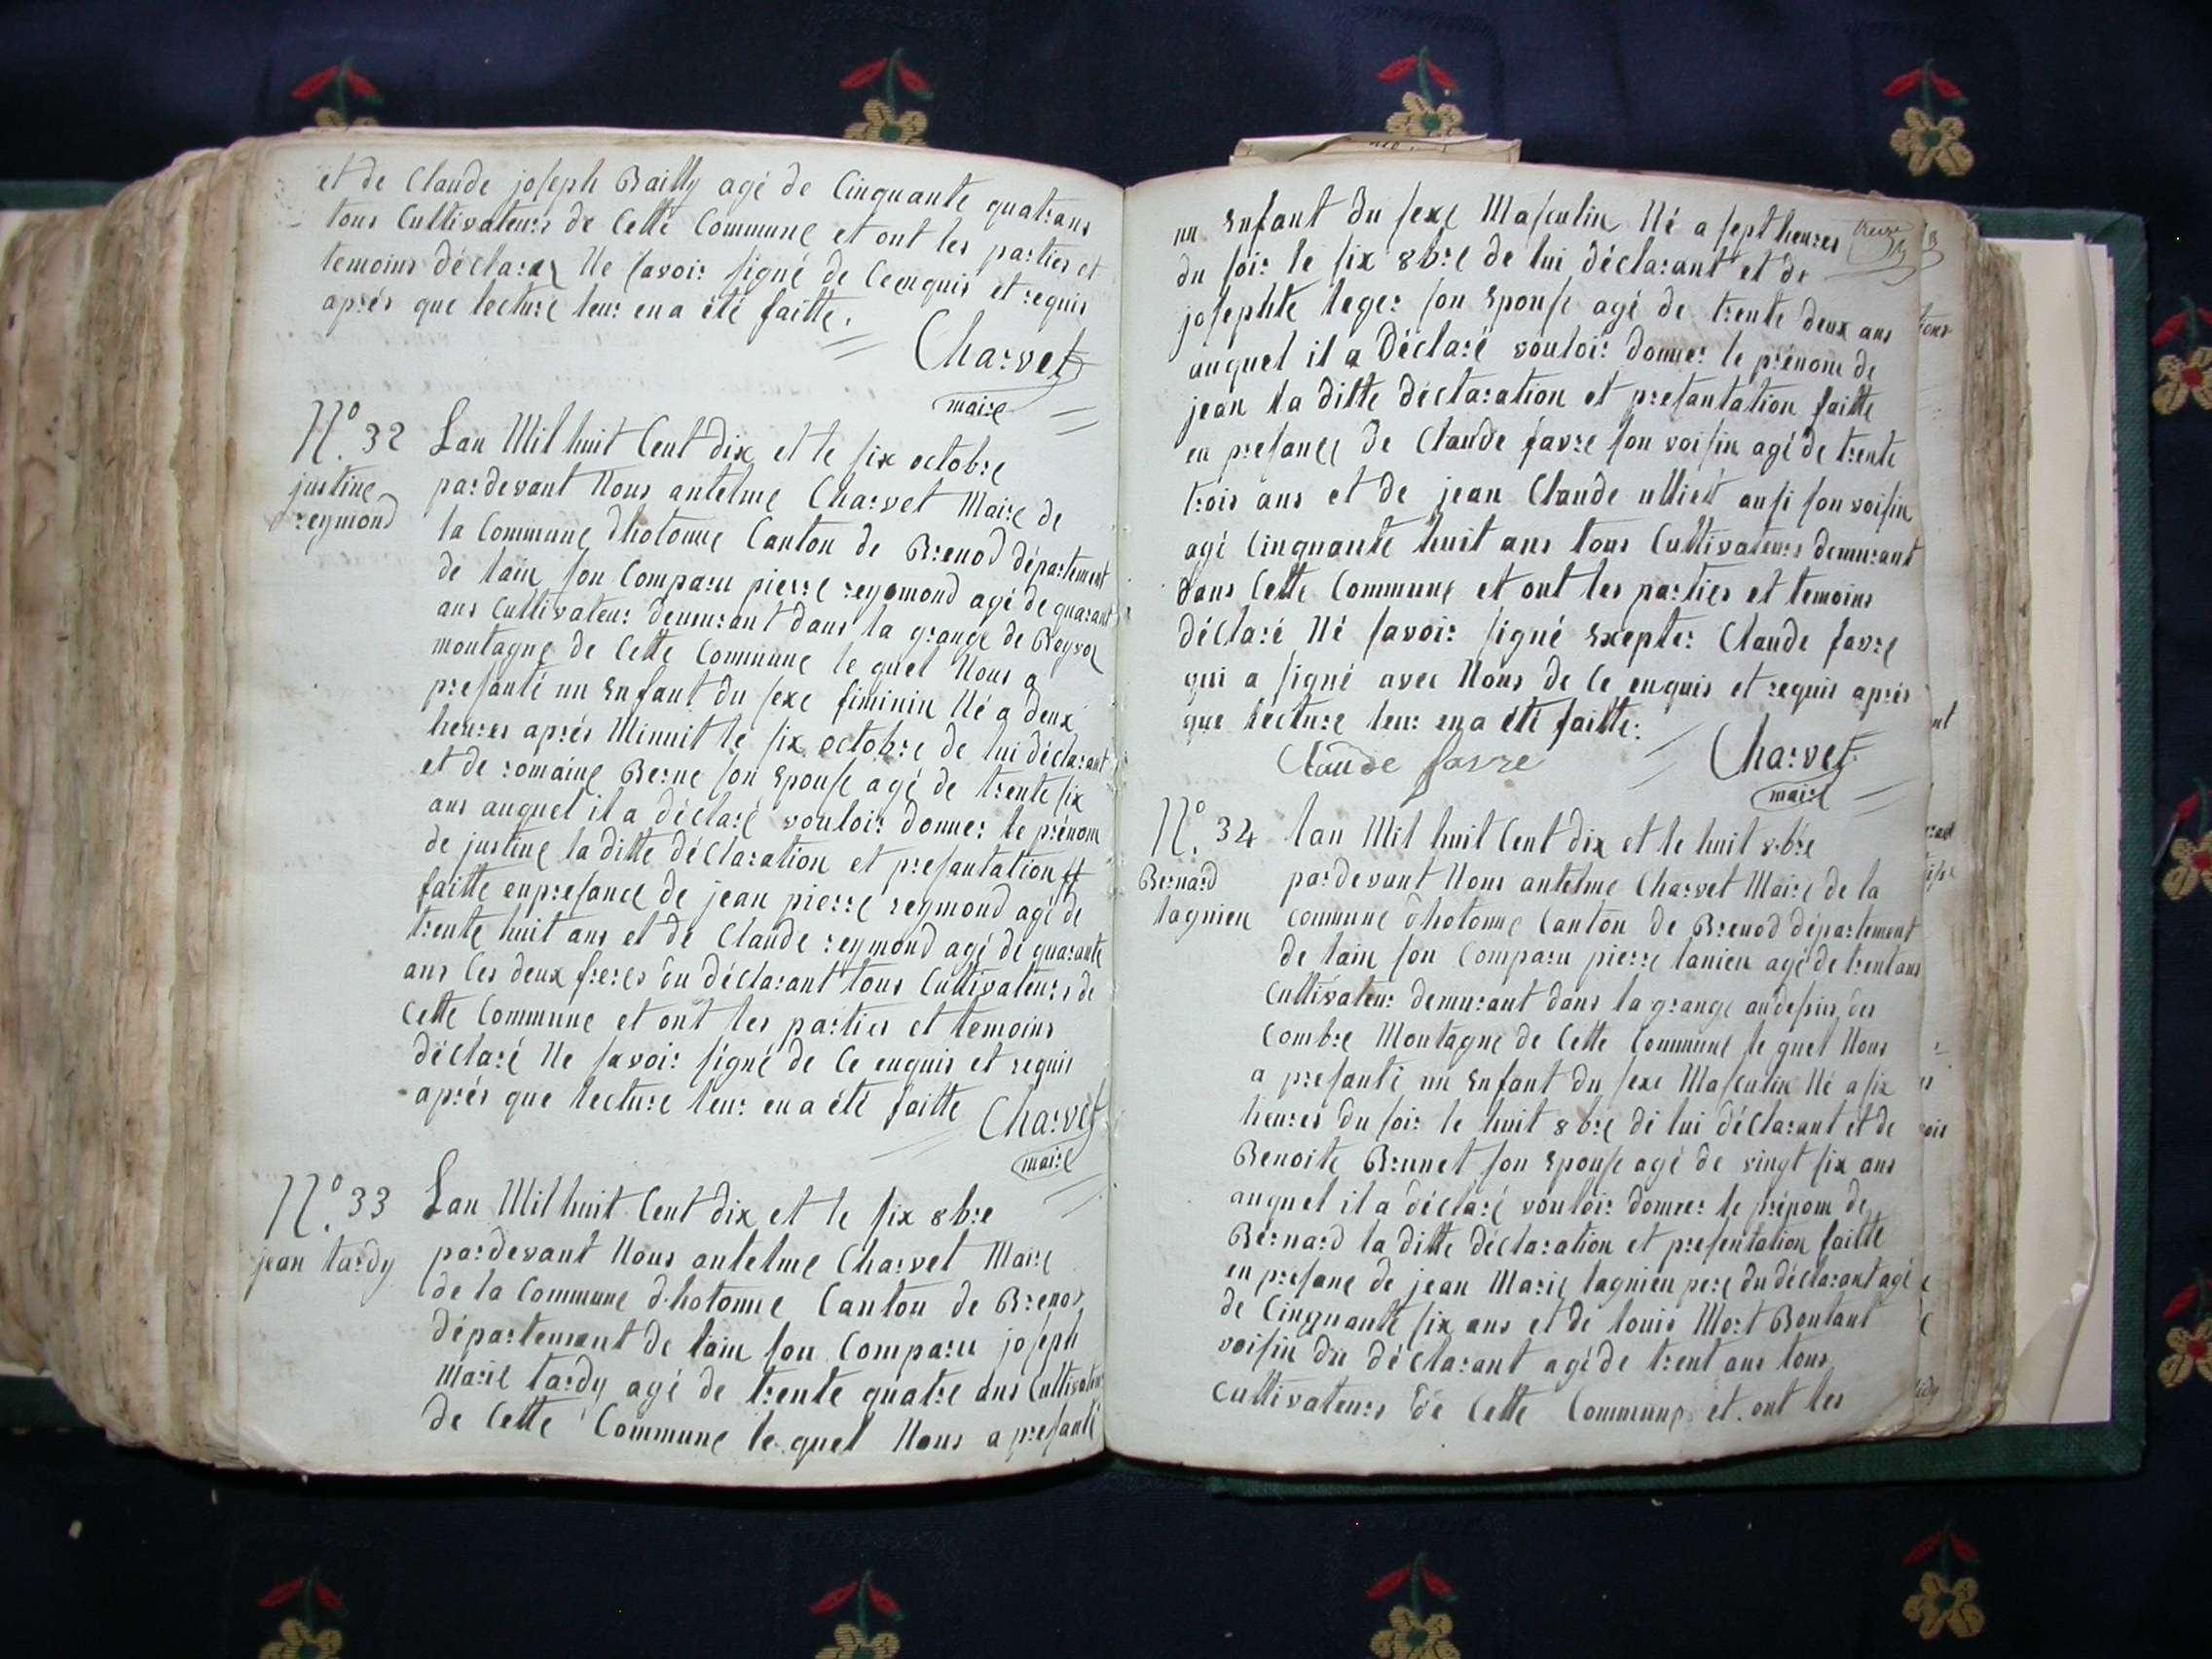 et de Claude joseph Bailly agé de Cinquante quatrans
tous Cultivateurs de Cette Commune et ont les parties et
temoins déclarez Ne savoir signé de Ce enquis et requis
aprés que lecture leur en a été faitte.
Charvet
maire
N.º 32
justine
reymond
Lan Mil huit Cent dix et le six octobre
pardevant Nous antelme Charvet Maire de
la Commune dhotonne Canton de Brenod département
de lain son Comparu pierre reymond agé de quarant
ans Cultivateur demurant dans la grange de
montagne de Cette Commune le quel Nous a
presanté un Enfant du sexe feminin Né a deux
heures aprés Minuit le six octobre de lui déclarant
et de romaine Berne son Epouse agé de trente six
ans auquel il a déclaré vouloir donner le prénom
de justine la ditte déclaration et presantation
faitte en presance de jean pierre reymond agé de
trente huit ans et de Claude reymond agé de quarante
ans les deux freres du déclarant tous Cultivateurs de
Cette Commune et ont les parties et temoins
déclaré Ne savoir signé de Ce enquis et requis
aprés que lecture leur en a été faitte
Charvet
maire
N.º 33
jean tardy
Lan Mil huit Cent dix et le six 8bre
pardevant Nous antelme Charvet Maire
de la Commune dhotonne Canton de Brenod
département de lain son Comparu joseph
Marie tardy agé de trente quatre ans Cultivateur
de Cette Commune le quel Nous a presanté
un Enfant du sexe Masculin Né a sept heures
du soir le six 8bre de lui déclarant et de
josephte leger son Epouse agé de trente deux ans
auquel il a Déclaré vouloir donner le prénom de
jean la ditte déclaration et presantation faitte
en presance de Claude favre son voisin agé de trente
trois ans et de jean Claude ulliet ausi son voisin
agé Cinquante huit ans tous Cultivateurs demurant
dans Cette Commune et ont les parties et temoins
déclaré Né savoir signé Exepter Claude favre
qui a signé avec Nous de Ce enquis et requis aprés
que lécture leur en a été faitte.
Claude favre
Charvet
maire
N.º 34
Bernard
lagnieu
lan Mil huit Cent dix et le huit 8bre
pardevant Nous antelme Charvet Maire de la
Commune dhotonne Canton de Brenod département
de lain son Comparu pierre lanieu agé de trent ans
Cultivateur demurant dans la grange audesus des
Combre Montagne de Cette Commune le quel Nous
a presanté un Enfant du sexe Masculin Né a six
heures du soir le huit 8bre de lui déclarant et de
Benoite Brunet son Epouse agé de vingt six ans
auquel il a déclaré vouloir donner le prénom de
Bernard la ditte déclaration et presentation faitte
en presane de jean Marie lagnieu pere du déclarant agé
de Cinquante six ans et de louis Mort Bontant
voisin du déclarant agé de trent ans tous
Cultivateurs de Cette Commune et ont les